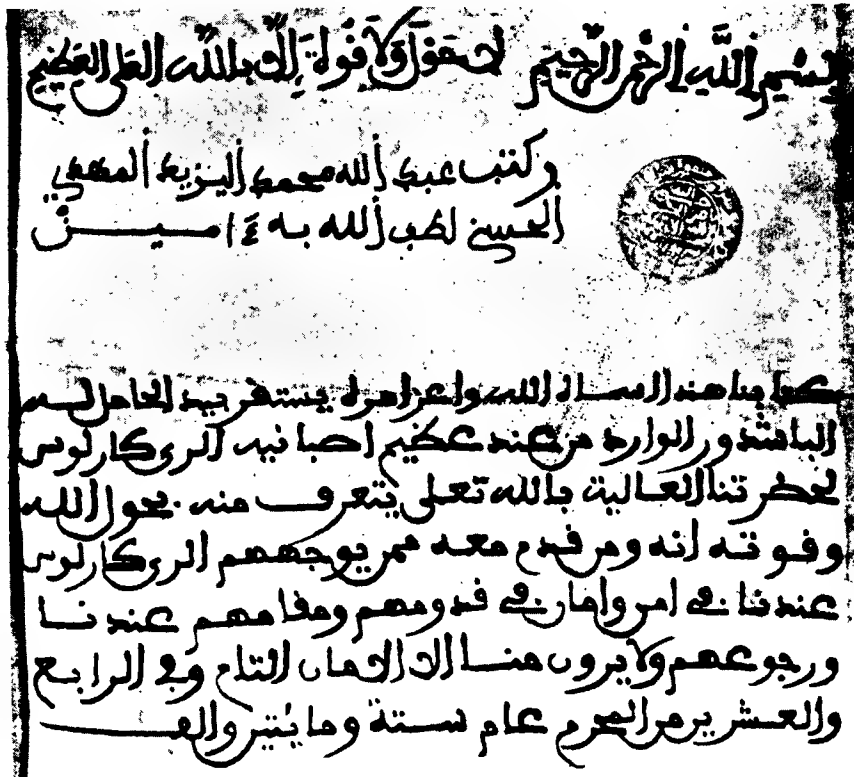 بسم الله الرحمن الرحيم لا حول ولا قوة الا بالله العلي العظيم
وكتب عبد الله محمد اليزيد المهدي
الحسني لطف الله به ءامين
كتابنا هذا اسماه الله واعز امره يستقر بيد الحامل له
الباشدور الوارد من عند عظيم اصبانيه الري كارلوس
لحضرتنا العالية بالله تعلى يتعرف منه بحول الله
وقوته انه ومن قدم معه ممن يوجههم الري كارلوس
عندنا في امن وامان في قدومهم ومقامهم عندنا
ورجوعهم ولا يرون منا الا الامان التام وفي الرابع
والعشرين من المحرم عام ستة ومائتين والف